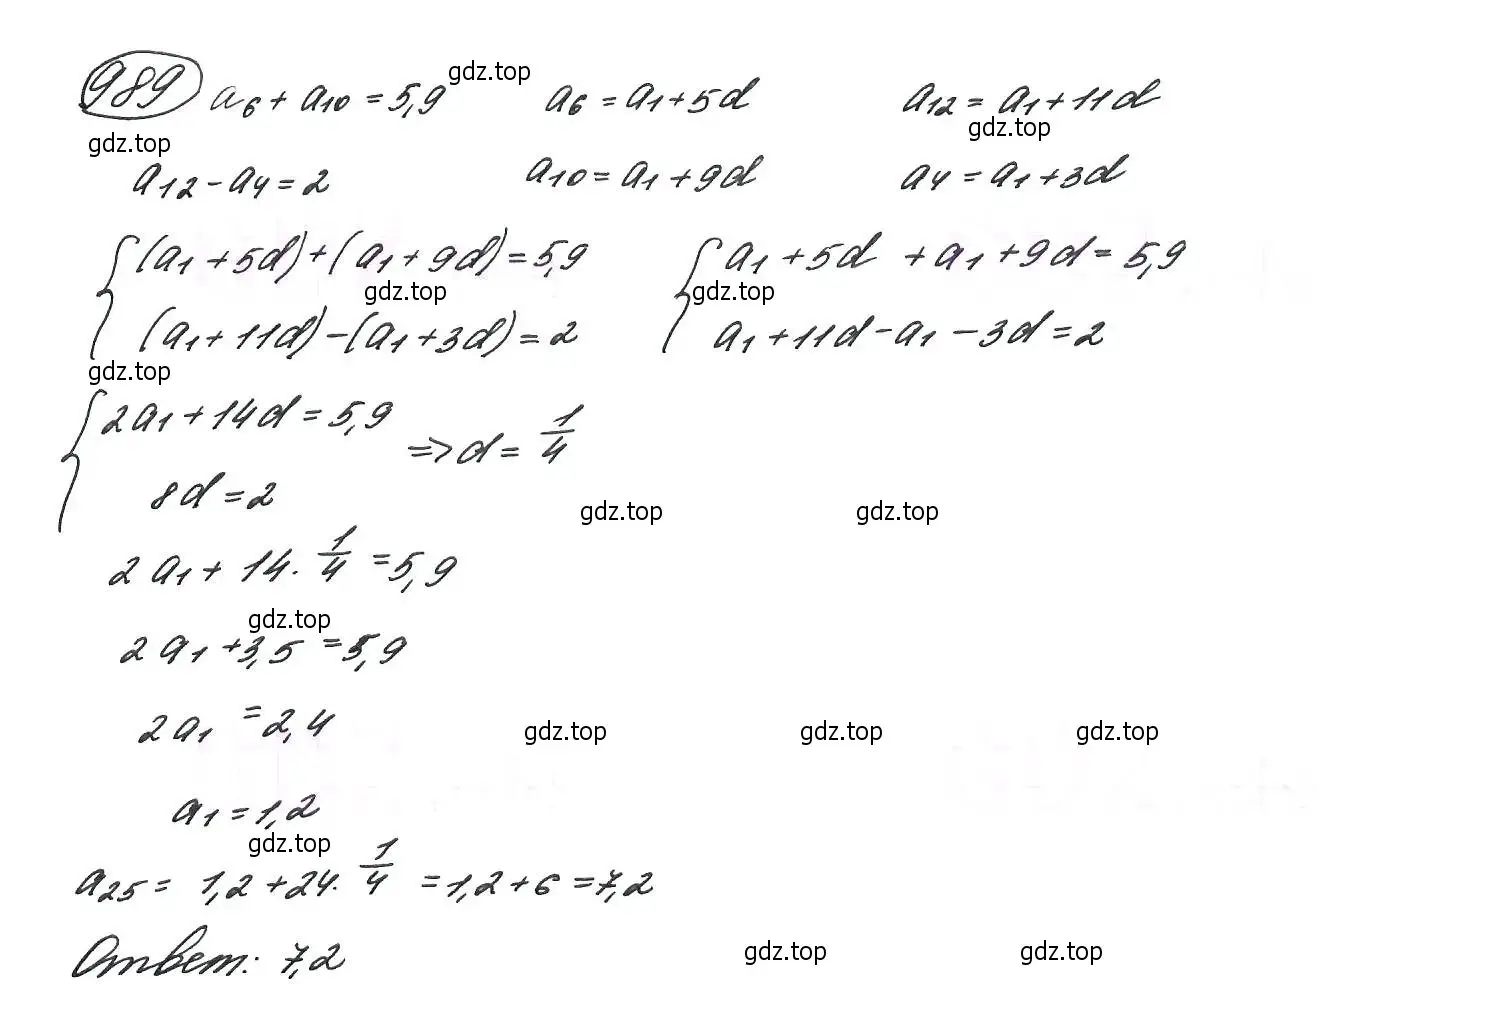 989 a₆ + a₁₀ = 5,9 gdz.top a₆ = a₁ + 5d a₁₂ = a₁ + 11d
gdz.top gdz.top
a₁₂ - a₄ = 2 a₁₀ = a₁ + 9d a₄ = a₁ + 3d
{ (a₁ + 5d) + (a₁ + 9d) = 5,9 { a₁ + 5d + a₁ + 9d = 5,9
gdz.top gdz.top
(a₁ + 11d) - (a₁ + 3d) = 2 a₁ + 11d - a₁ - 3d = 2
gdz.top
{ 2a₁ + 14d = 5,9 => d = 1/4
8d = 2
gdz.top gdz.top
2a₁ + 14 · 1/4 = 5,9
gdz.top
2a₁ + 3,5 = 5,9
2a₁ = 2,4
gdz.top gdz.top gdz.top
a₁ = 1,2
gdz.top
a₂₅ = 1,2 + 24 · 1/4 = 1,2 + 6 = 7,2
Ответ: 7,2
gdz.top gdz.top